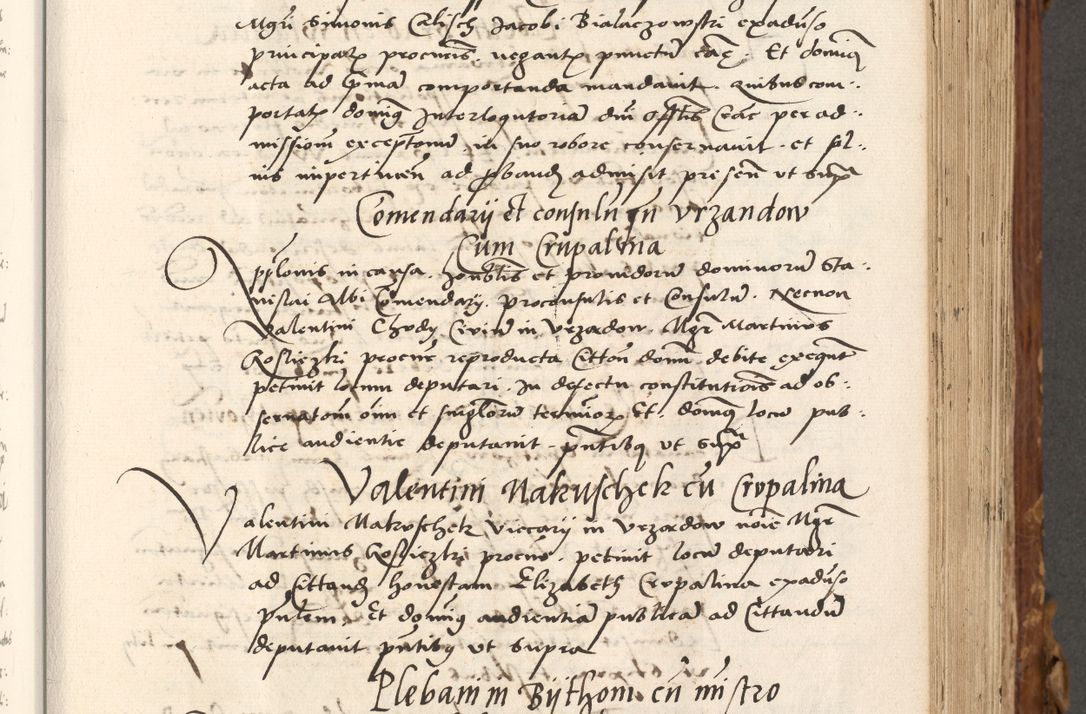 Mgri Simonis Calisch Jacobi Bialaczowski exaduso
principalz procuris negantz punctum eaz. Et dominus
acta ad primam comportanda mandavit. quibus com-
portatz dominus Interloqutoria dni offtis Crac per ad-
missionem exceptionum in suo robore conservavit et
nis impertinen ad probandum admisit presen ut supra
Comendarii et consulum in Vrzandow
Cum Crupalina
in causa honbilis et providorum dominorum Sta-
nislai Albi Comendarii proconsulis et Consulum Necnon
Valentini Chody Civium in Vrzadow Mgr Martinus
procur reproducta Citton domi debite exequt
petivit locum deputari. In defectu constitutionis ad ob-
servatom oim et singlorum terminorz Et dominus locum pub-
lice audientie deputavit pntibus ut supra
Valentini Nakuschek cum Crupalina
Valentini Nakuschek Viccarii in Vrzadow noie Mgr
Martinus procur petivit locum deputari
ad Cittandum honestam Elizabeth Crupalina exaduso
pntem. Et dominus audientiam publicam ad Cittandum
deputavit pntibus ut supra
Plebanum Bythom cum